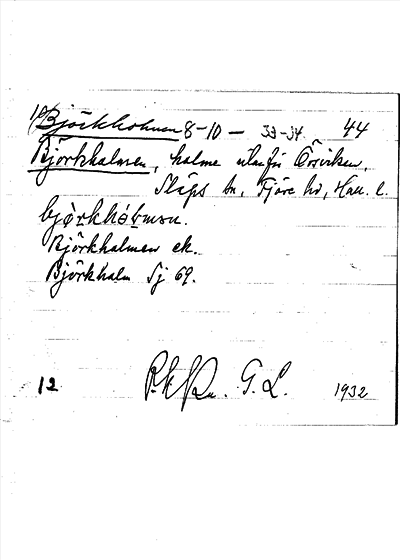 19) Björkholmen 8-10 — 33-34 44
Björkholmen, holme utanför Örsviken,
Släps sn, Fjäre hd, Hall. l.
Björkholmen ek.
Björkholm Sj 69.
12 G. L. 1932